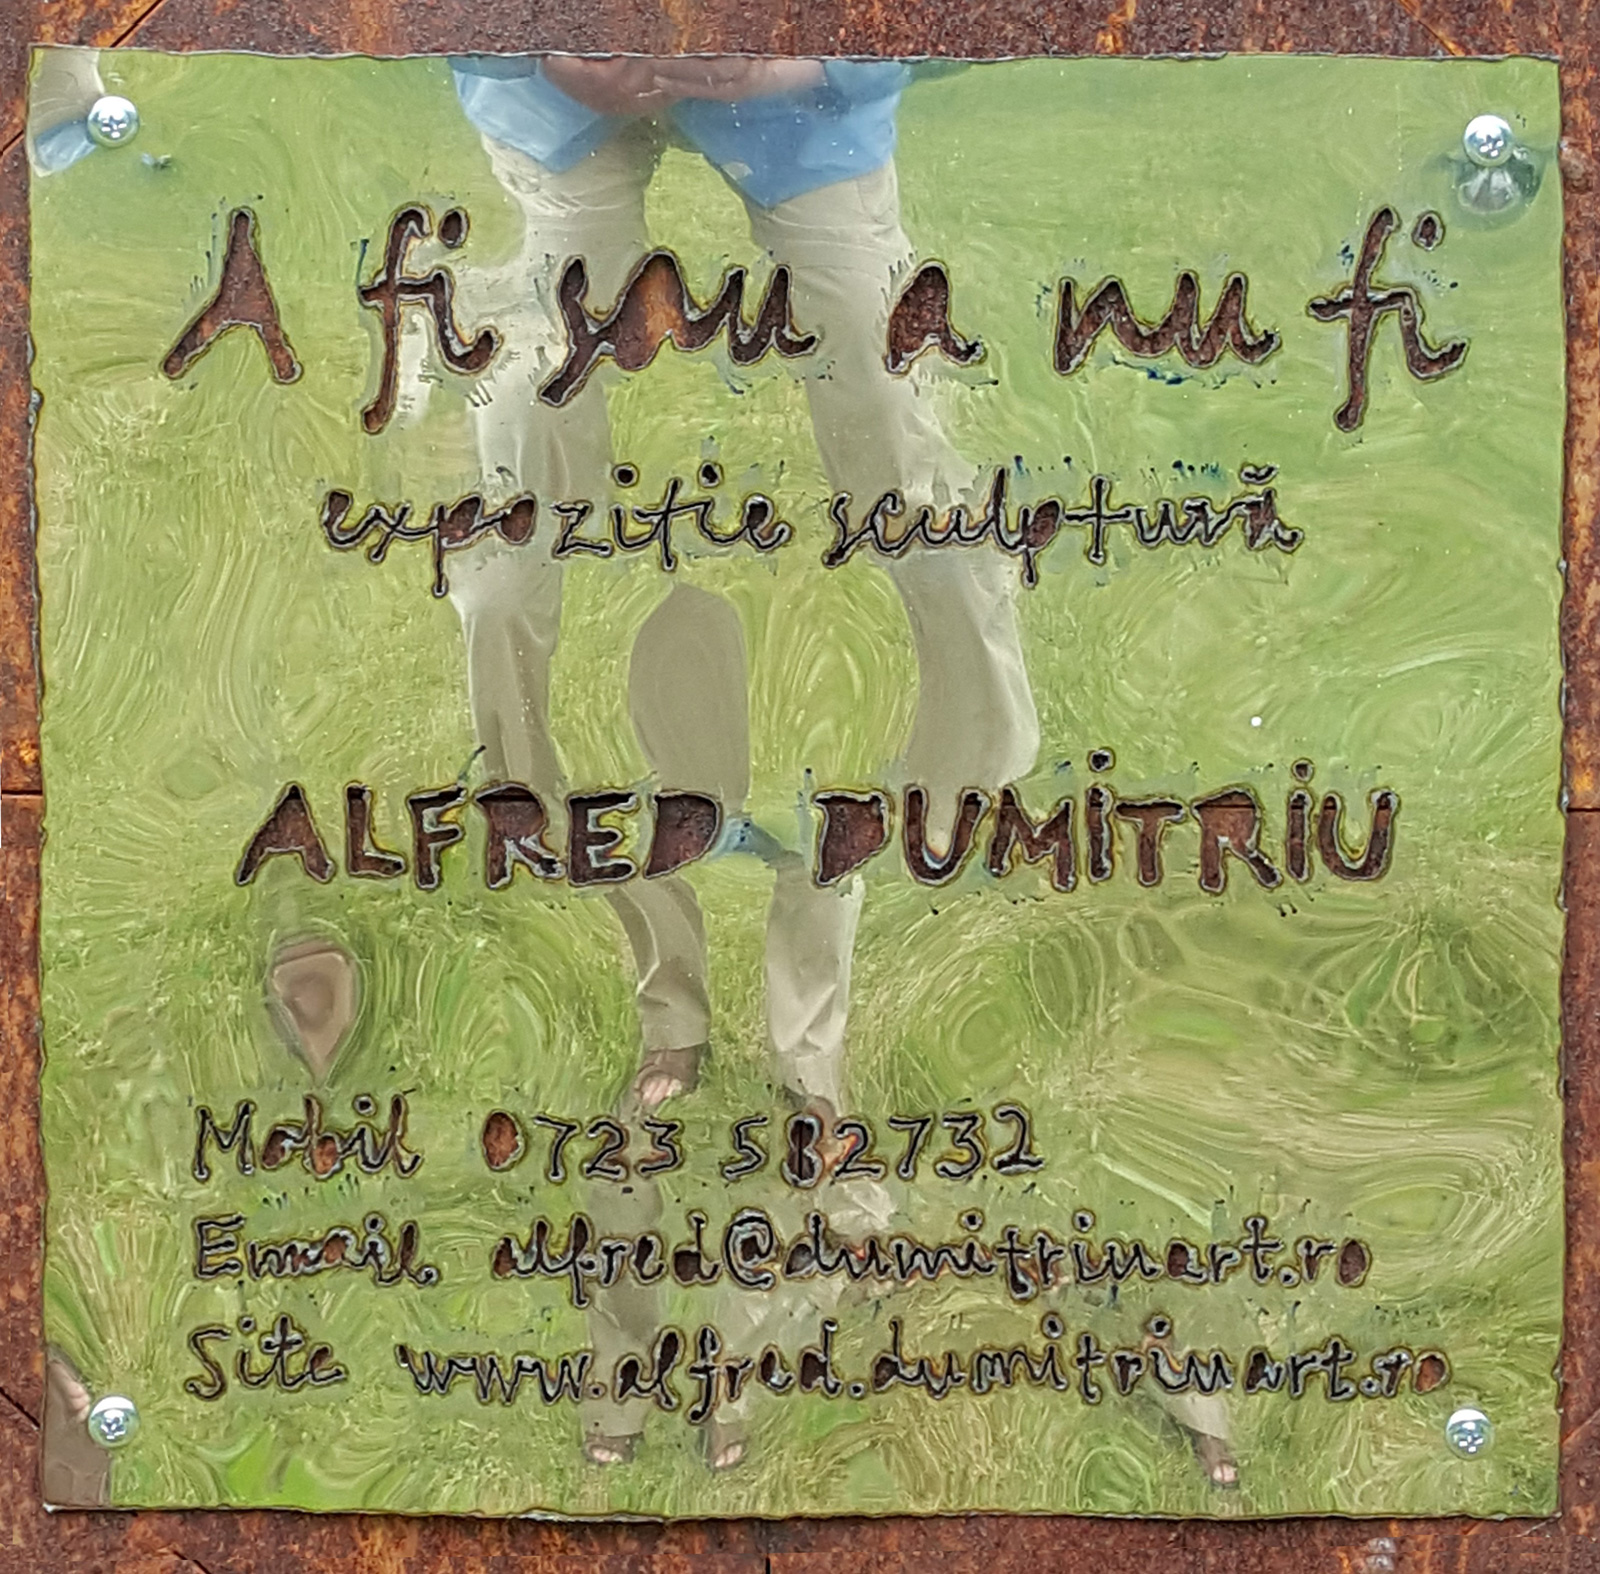 A fi sau a nu fi
expozitie sculptură
ALFRED DUMITRIU
Mobil 0723 582732
Email alfred@dumitriuart.ro
Site www.alfred.dumitriuart.ro